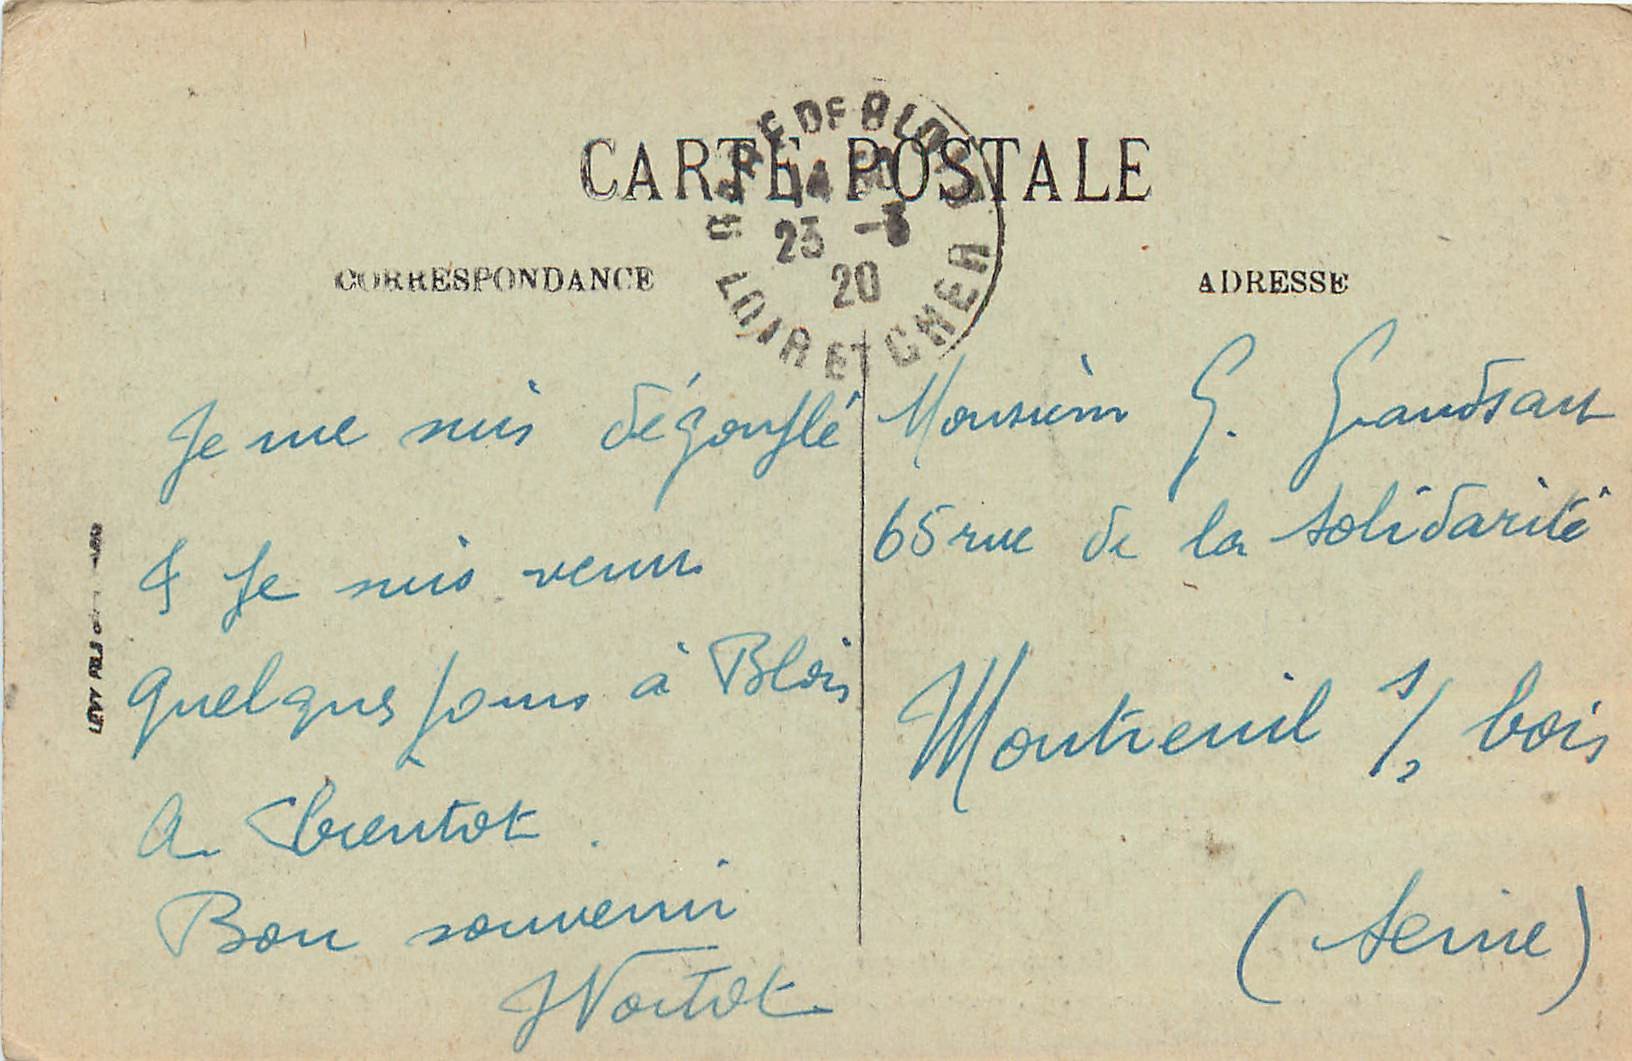 CARTE POSTALE
GARE DE BLOIS
14
23 -3
20
LOIR ET CHER
CORRESPONDANCE
ADRESSE
Je me suis dégonflé
& Je suis venu
quelques jours à Blois
A bientot.
Bon souvenir
Monsieur G. Grandsart
65 rue de la Solidarité
Montreuil s/s bois
(Seine)
LÉVY FILS